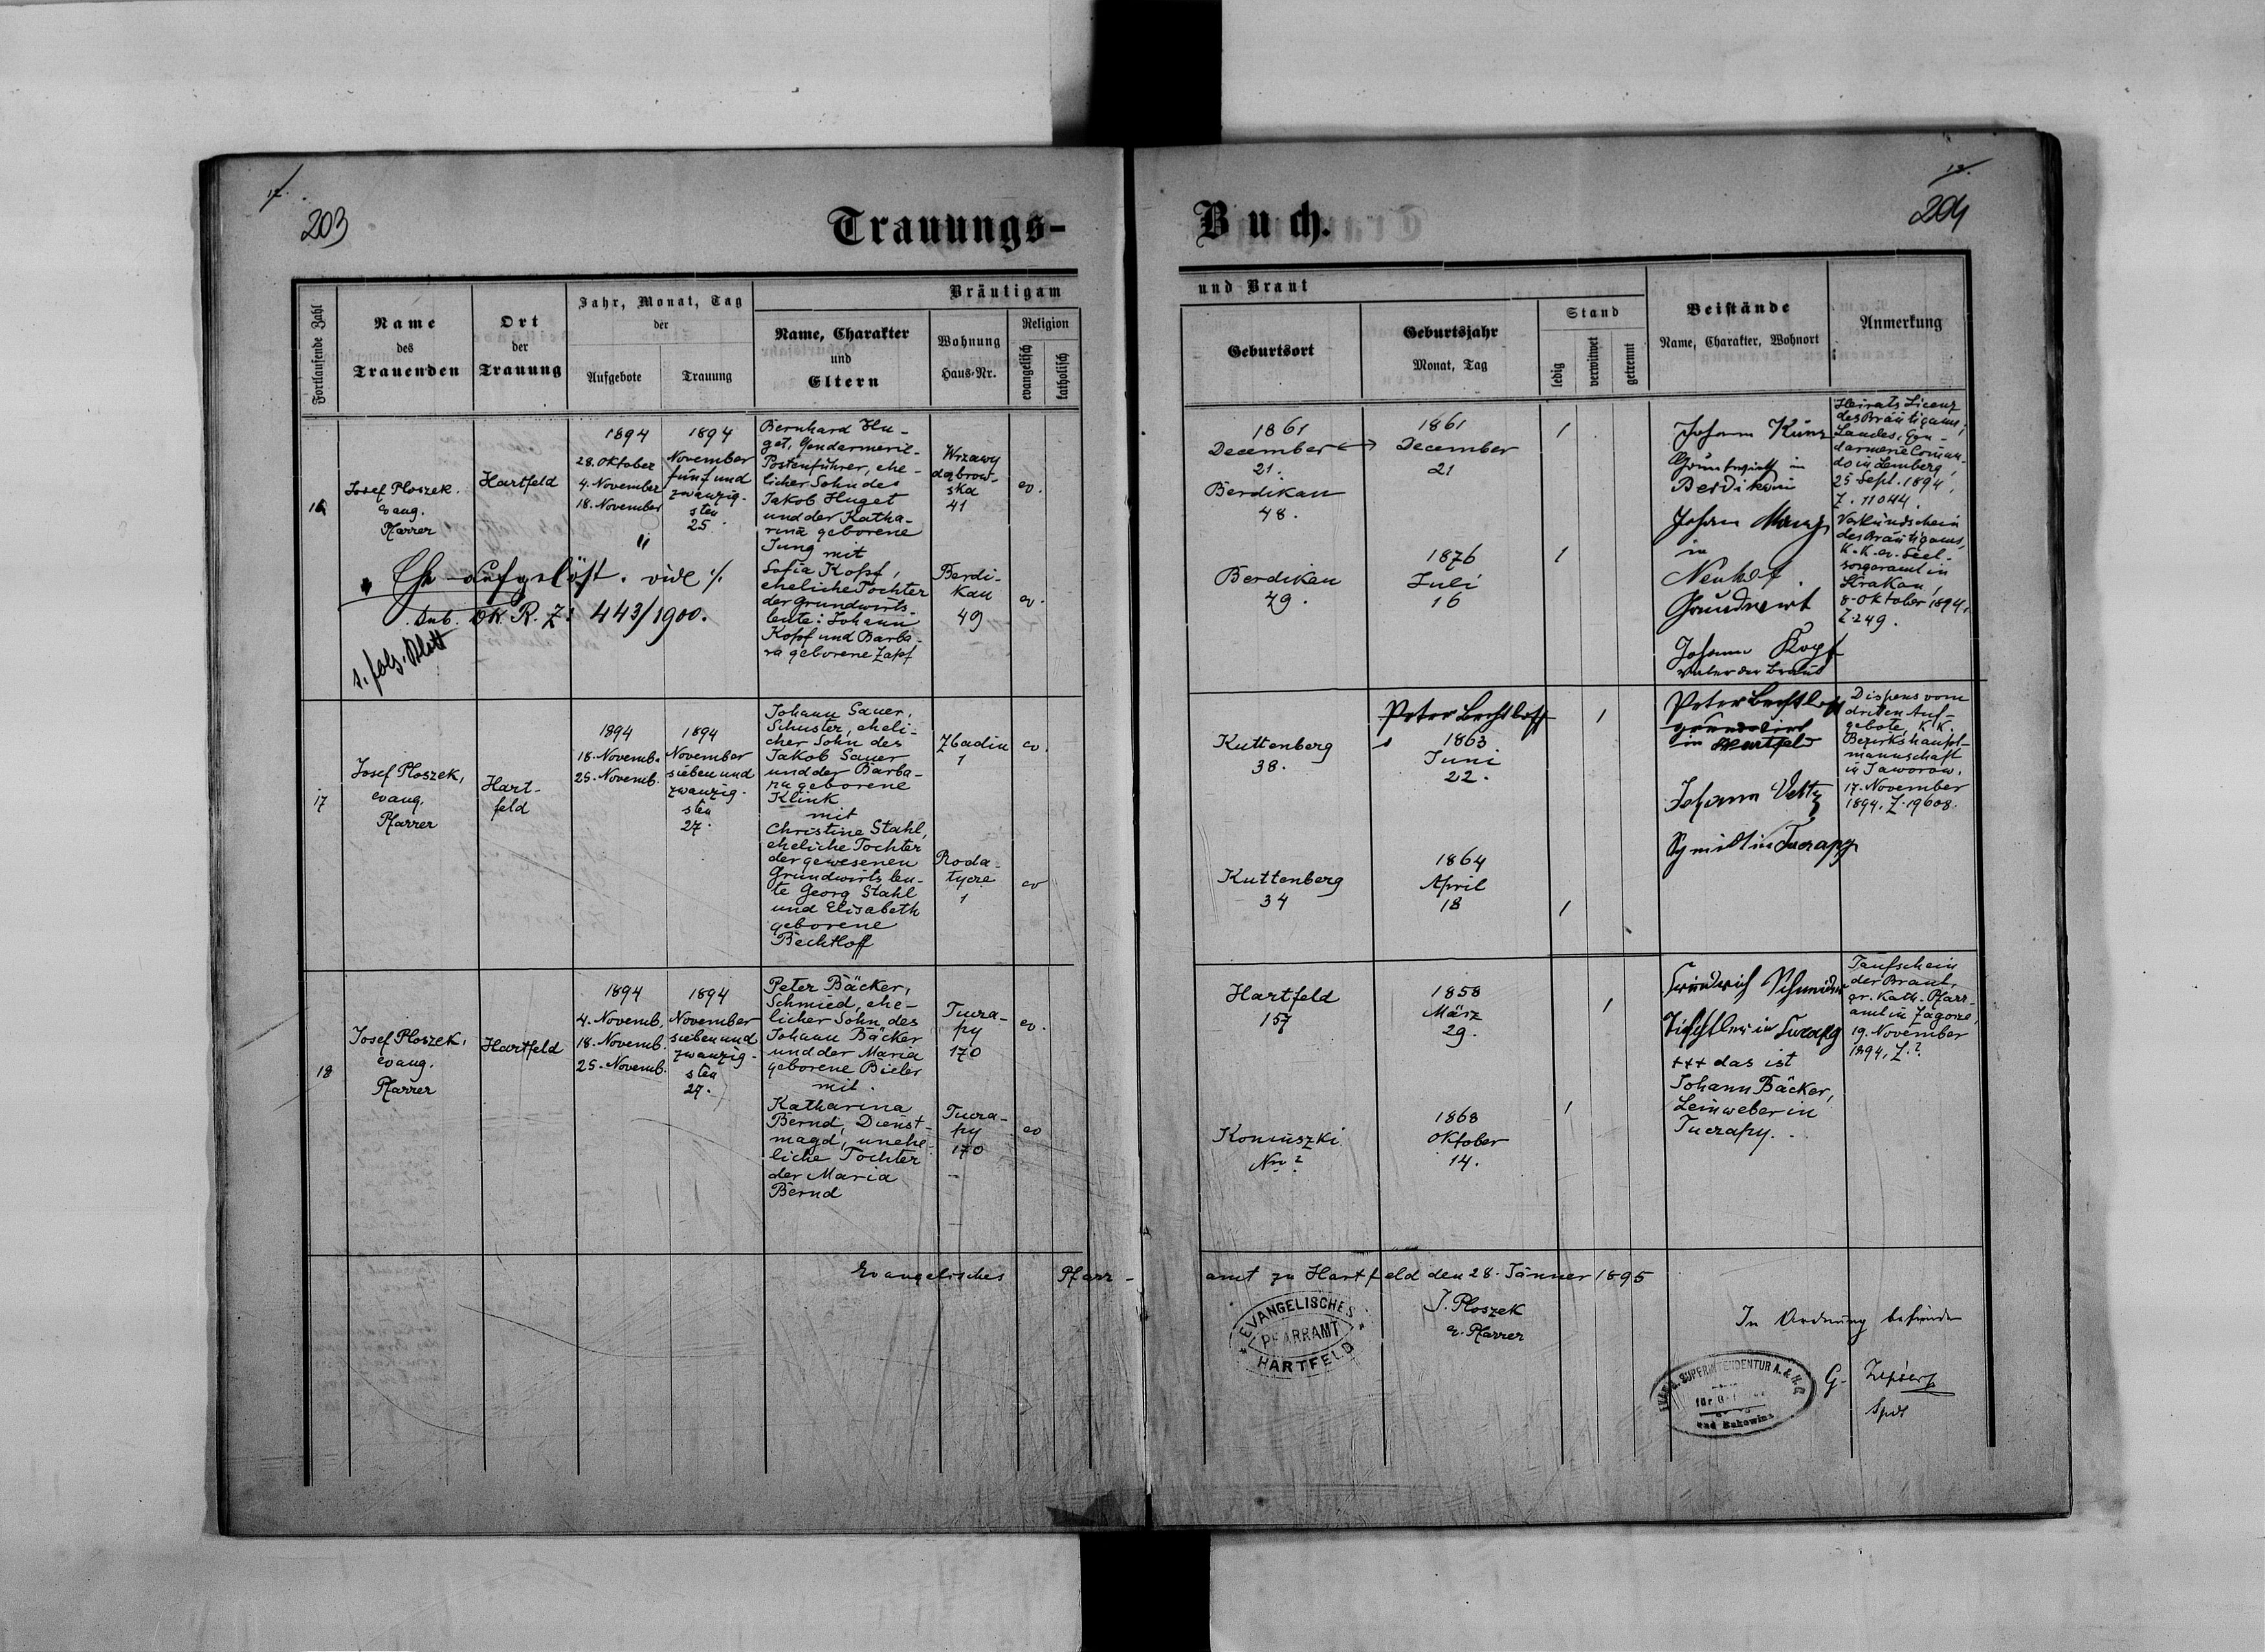 17.
203
Trauungs-
Fortlaufende Zahl
Name
des
Trauenden
Ort
der
Trauung
Jahr, Monat, Tag
der
Aufgebote
Trauung
Bräutigam
Name, Charakter
und
Eltern
Wohnung
Haus-Nr.
Religion
evangelisch
katholisch
16
Josef Ploszek.
evang.
Pfarrer
Hartfeld
1894
28. Oktober
4. November
18. November
1894
November
fünf und
zwanzig-
sten
25.
Bernhard Hu-
get, Gendarmerie-
Postenführer, ehe-
licher Sohn des
Jakob Huget
und der Katha-
rina geborene
Jung mit
Sofia Kopf,
eheliche Tochter
der Grundwirts-
leute: Johann
Kopf und Barba-
ra geborene Zapf
Wrzawy
dąbrow-
ska
41
ev.
Berdi-
kau
49
ev.
Ehe aufgelöst. vide %
sub. OK. R. Z: 443/1900.
s. folg. Blatt
17
Josef Ploszek,
evang.
Pfarrer
Hart-
feld
1894
18. Novemb.
25. Novemb.
1894
November
sieben und
zwanzig-
sten
27.
Johann Sauer,
Schuster, eheli-
cher Sohn des
Jakob Sauer
und der Barba-
ra geborene
Klink
mit
Christine Stahl,
eheliche Tochter
der gewesenen
Grundwirtsleu-
te Georg Stahl
und Elisabeth
geborene
Bechtloff
Zbadin
1
ev.
Roda-
tycze
1
ev
18
Josef Ploszek,
evang.
Pfarrer
Hartfeld
1894
4. Novemb.
18. Novemb.
25. Novemb.
1894
November
sieben und
zwanzig-
sten
27.
Peter Bäcker,
Schmied, ehe-
licher Sohn des
Johann Bäcker
und der Maria
geborene Bieler
mit.
Katharina
Bernd, Dienst-
magd, unehe-
liche Tochter
der Maria
Bernd
Tucza-
py
170
ev.
Tucza-
py
170
ev
Evangelisches Pfarr-
204
Buch.
und Braut
Geburtsort
Geburtsjahr
Monat, Tag
Stand
ledig
verwitwet
getrennt
Beistände
Name, Charakter, Wohnort
Anmerkung
1861
December
21.
Berdikau
48.
1861
December
21
1
Berdikau
49.
1876
Juli
16
1
Johann Künz
Grundwirth in
Berdikau
Johann Manz
in
Neuhof.
Grundwirt
Johann Kopf
Vater der Braut
Heirats Licenz
des Bräutigams,
Landes-Gen-
darmerie Comman-
do in Lemberg,
25 Sept. 1894,
Z. 11044.
Verkündschein
des Bräutigams,
K. K. ev. Seel-
sorgeramt in
Krakau,
8. Oktober 1894,
Z. 249.
Kuttenberg
38.
Peter Bechtloff
1863
Juni
22.
1
Kuttenberg
34
1864
April
18
1
Peter Bechtloff
Grundwirt
in Hartfeld
Johann Veltz
Schmidt in Tuczapy
Dispens vom
dritten Auf-
gebote, K. K.
Bezirkshaupt-
mannschaft
in Jaworow.
17. November
1894. Z. 19608.
Hartfeld
157
1858
März
29.
1
Koniuszki
Nro ?
1868
Oktober
14.
1
Friedrich Schneider
Tischler in Tuczapy
+++ das ist
Johann Bäcker,
Leinweber in
Tuczapy.
Taufschein
der Braut,
gr. Kath. Pfarr-
amt in Zagorze,
19. November
1894, Z.?
amt zu Hartfeld den 28. Jänner 1895
J. Ploszek
ev. Pfarrer
EVANGELISCHES
PFARRAMT
HARTFELD
In Ordnung befunden
SUPERINTENDENTUR A. & H. C.
und Bukowina
G.